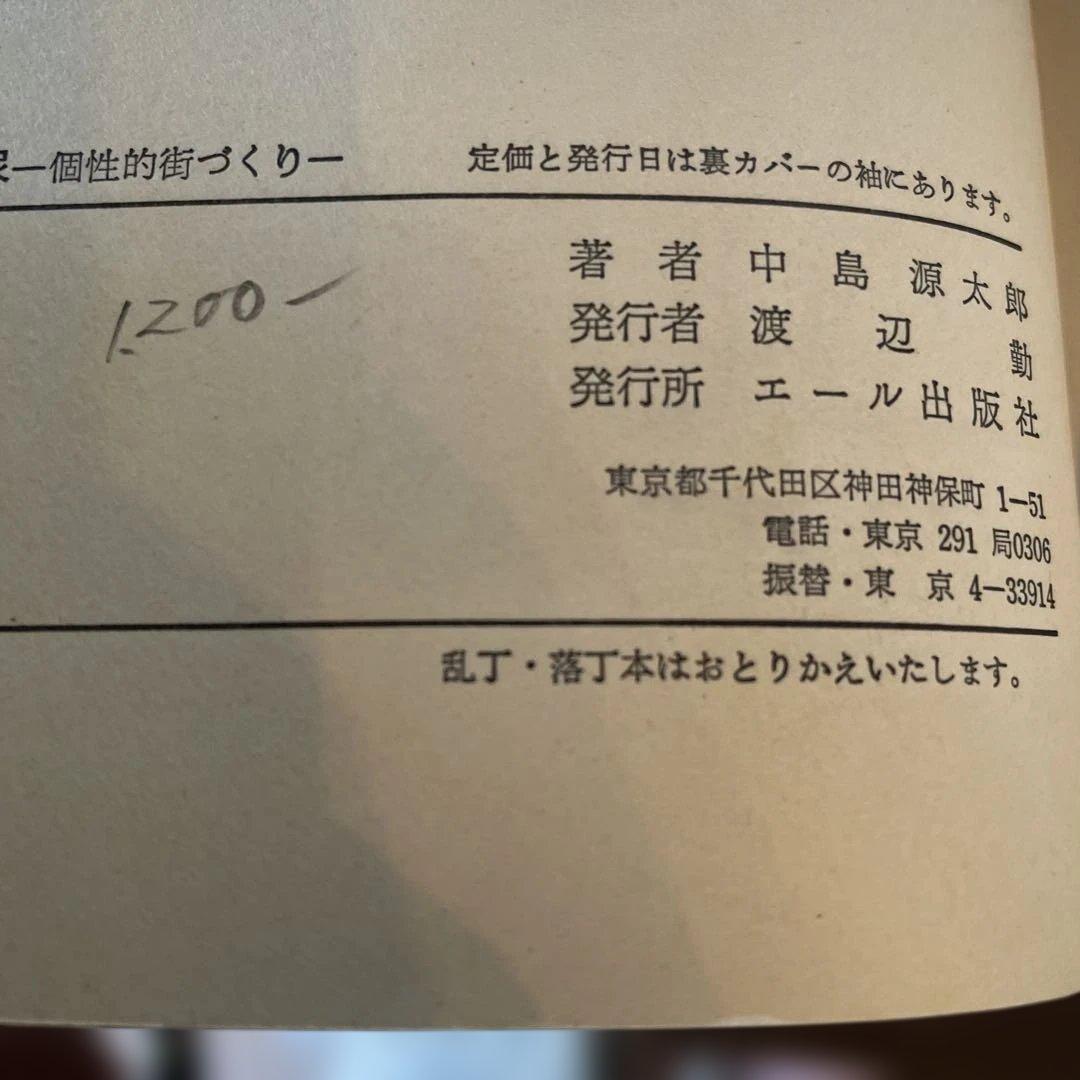 —個性的街づくり—
定価と発行日は裏カバーの袖にあります。
1.200—
著 者 中島源太郎
発行者 渡辺 勤
発行所 エール出版社
東京都千代田区神田神保町 1—51
電話・東京 291 局0306
振替・東 京 4—33914
乱丁・落丁本はおとりかえいたします。